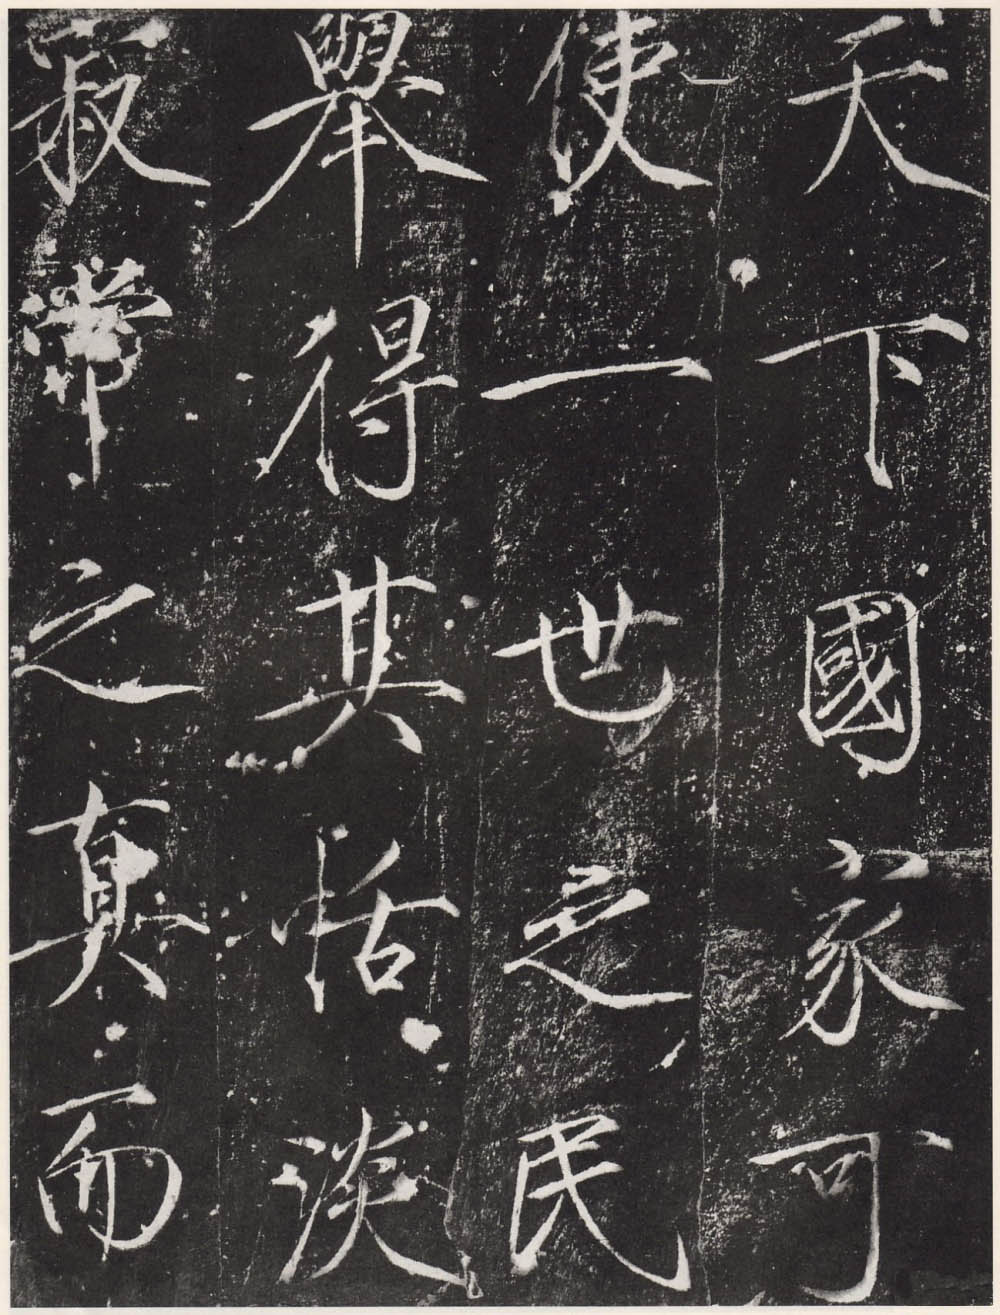 天下國家可
使一世之民
舉得其恬淡
寂常之真而